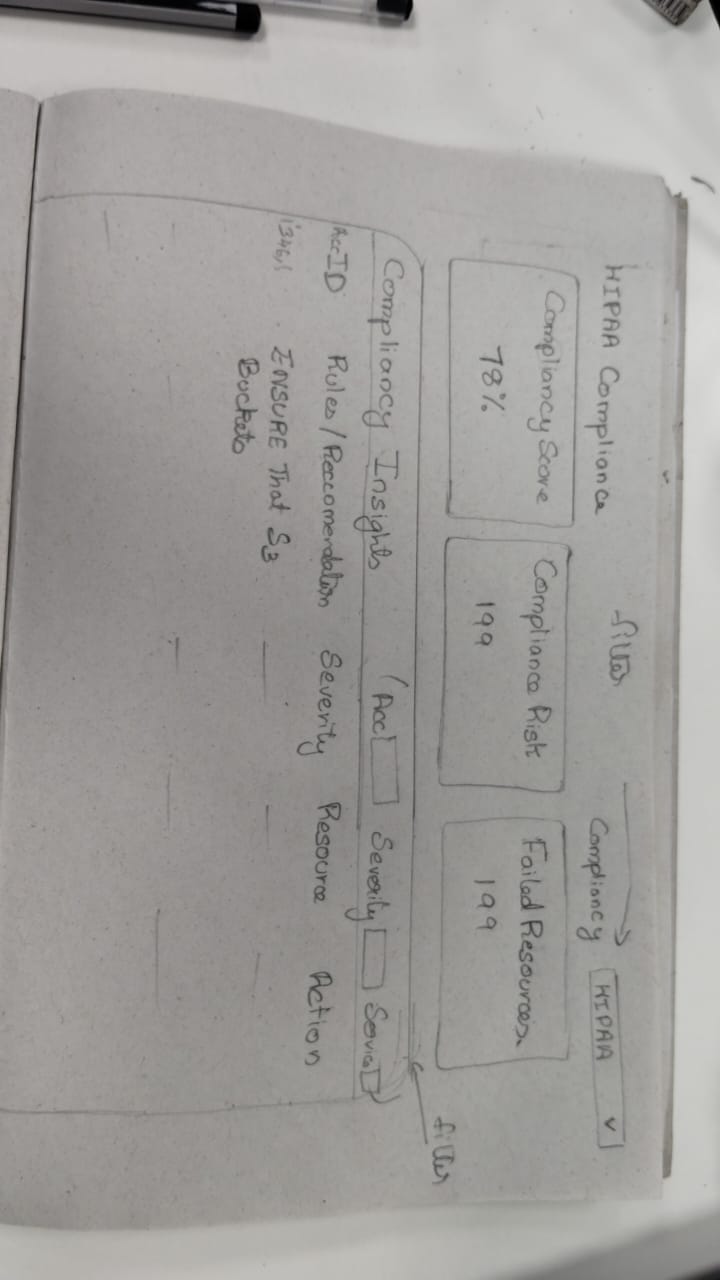 filter
HIPAA Compliance
Compliancy HIPAA
Compliancy Score
78%
Compliance Risk
199
Failed Resources.
199
filter
Compliancy Insights (Acc Severity Service)
AccID Rules/Reccomendation Severity Resource Action
ENSURE That S3
Buckets